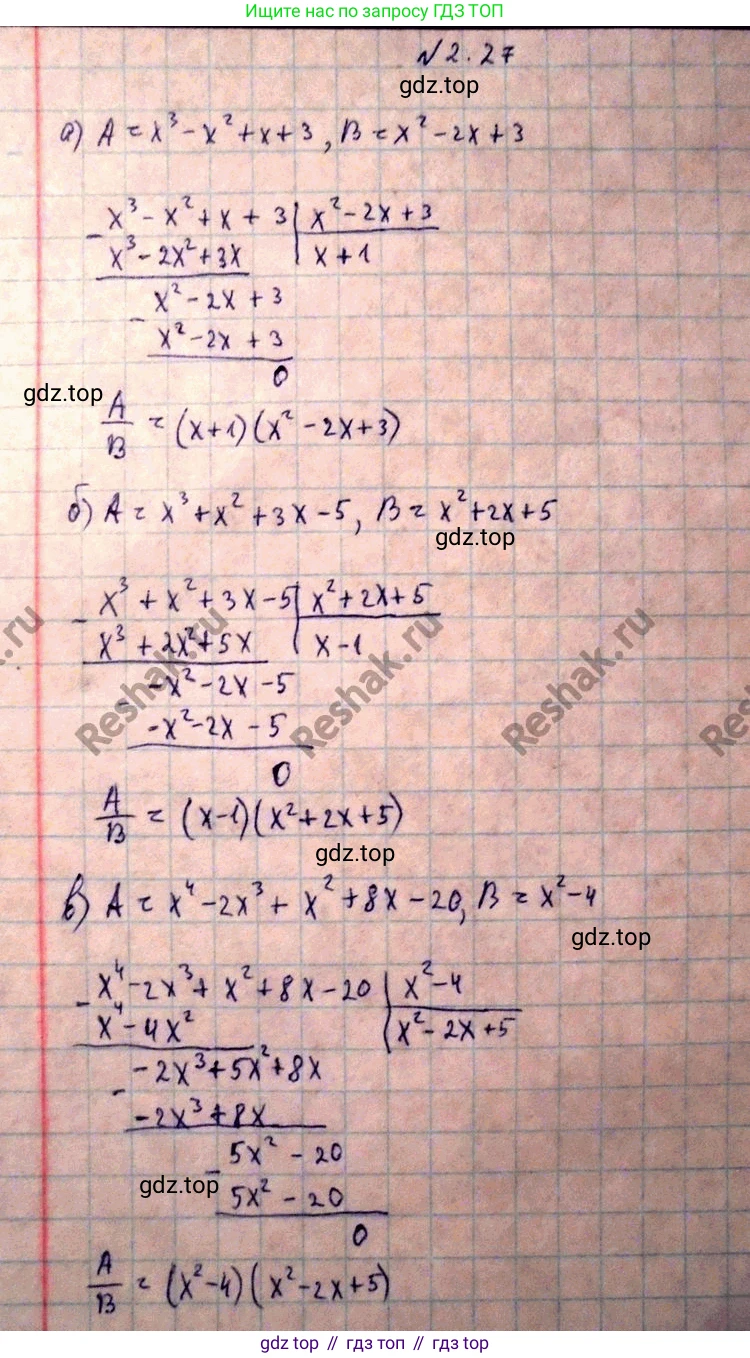 Ищите нас по запросу ГДЗ ТОП
№ 2.27
gdz.top
а) A = x³ - x² + x + 3, B = x² - 2x + 3
x³ - x² + x + 3 | x² - 2x + 3
- x³ - 2x² + 3x | x + 1
x² - 2x + 3
- x² - 2x + 3
0
gdz.top
A/B = (x+1)(x² - 2x + 3)
б) A = x³ + x² + 3x - 5, B = x² + 2x + 5
gdz.top
x³ + x² + 3x - 5 | x² + 2x + 5
- x³ + 2x² + 5x | x - 1
-x² - 2x - 5
- -x² - 2x - 5
Reshak.ru Reshak.ru Reshak.ru
0
A/B = (x-1)(x² + 2x + 5)
gdz.top
в) A = x⁴ - 2x³ + x² + 8x - 20, B = x² - 4
gdz.top
x⁴ - 2x³ + x² + 8x - 20 | x² - 4
- x⁴ - 4x² | x² - 2x + 5
-2x³ + 5x² + 8x
- -2x³ + 8x
5x² - 20
gdz.top
- 5x² - 20
0
A/B = (x² - 4)(x² - 2x + 5)
gdz top // гдз топ // gdz top